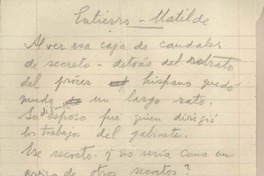 Entierro - Matilde
Al ver esa caja de caudales
de secreto - detrás del retrato
del prócer hispano quedó
muda un largo rato.
Su esposo fué quien dirigió
los trabajos del gabinete.
Ese secreto. ¿y no sería como un
de otros secretos?